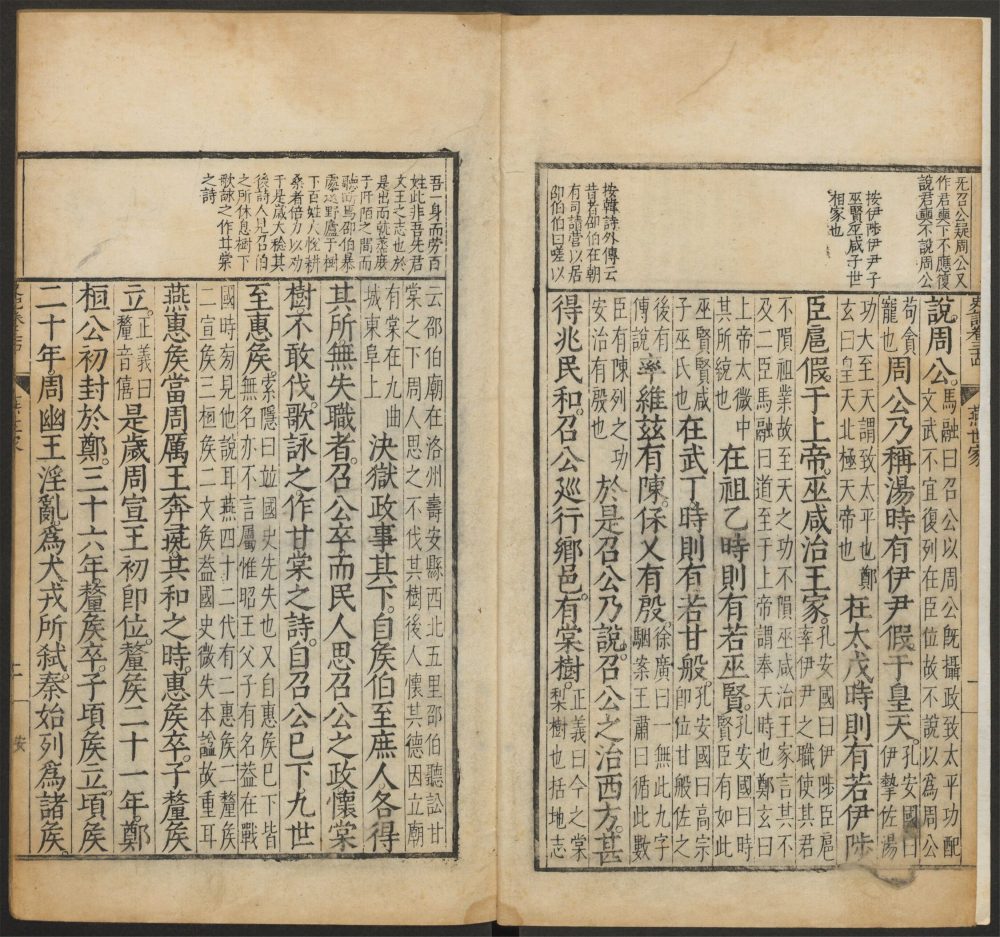 旡召公疑周公又
作君奭下不應復
說君奭不說周公
按伊陟伊尹子
巫賢巫咸子世
相家也
按韓詩外傳云
昔者卲伯在朝
有司請營以居
卲伯伯曰嗟以
燕世家
說周公。馬融曰召公以周公旣攝政致太平功配文武不宜復列在臣位故不說以爲周公
苟貪寵也周公乃稱湯時有伊尹假于皇天。孔安國曰伊摯佐湯
功大至天謂致太平也鄭玄曰皇天北極天帝也在太戊時則有若伊陟
臣扈假于上帝。巫咸治王家。孔安國曰伊陟臣扈率伊尹之職使其君
不隕祖業故至天之功不隕巫咸治王家言其不及二臣馬融曰道至于上帝謂奉天時也鄭玄曰
上帝太微中其所統也在祖乙時則有若巫賢。孔安國曰時賢臣有如此
巫賢賢咸子巫氏也在武丁時則有若甘般。孔安國曰高宗即位甘般佐之
後有傳說率維茲有陳保乂有殷。徐廣曰一無此九字駰案王肅曰循此數
臣有陳列之功安治有殷也於是召公乃說。召公之治西方甚
得兆民和。召公廵行鄉邑。有棠樹。正義曰今之棠棃樹也括地志
吾一身而勞百
姓此非吾先君
文王之志也於
是出而就蒸庶
于阡陌之間而
聽斷焉卲伯暴
處遠野廬于樹
下百姓人恱耕
桑者倍力以劝
于是歲大稔其
後詩人見召伯
之所休息樹下
歌詠之作甘棠
之詩
云邵伯廟在洛州壽安縣西北五里邵伯聽訟甘棠之下周人思之不伐其樹後人懷其德因立廟
有棠在九曲城東阜上決獄政事其下。自矦伯至庶人各得
其所無失職者。召公卒而民人思召公之政懷棠
樹不敢伐。歌詠之。作甘棠之詩。自召公巳下。九世
至惠矦。索隱曰竝國史先失也又自惠矦巳下皆無名亦不言屬惟昭王父子有名葢在戰
國時旁見他說耳燕四十二代有二惠矦二釐矦二宣矦三桓矦二文矦葢國史微失本謚故重耳
燕惠矦當周厲王奔彘共和之時。惠矦卒。子釐矦
立。正義曰釐音僖是歲周宣王初卽位釐矦二十一年。鄭
桓公初封於鄭。三十六年釐矦卒。子頃矦立。頃矦
二十年。周幽王淫亂。爲犬戎所。弑秦始列爲諸矦。
安